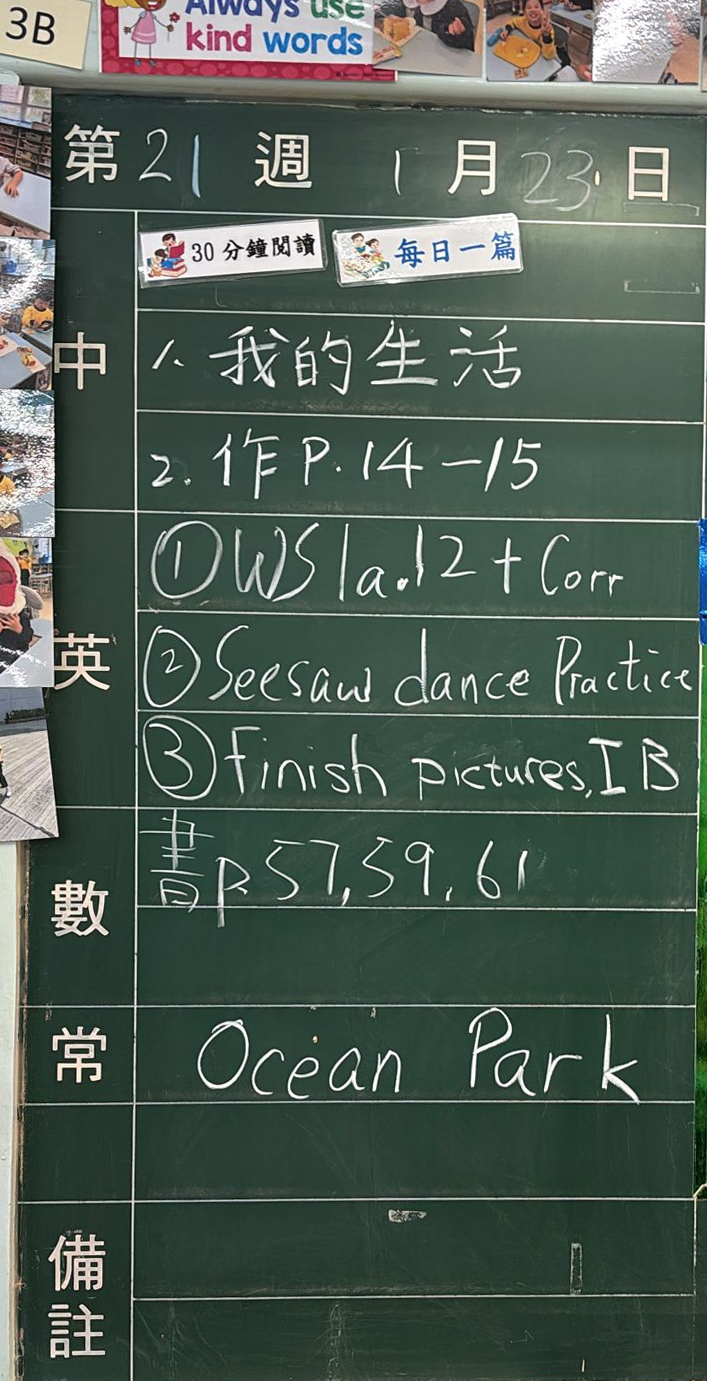 3B
Always use
kind words
第 21 週 1 月 23 日
30 分鐘閱讀 每日一篇
中
1. 我的生活
2. 作 P. 14 - 15
英
① WS 1a.12 + Corr
② Seesaw dance Practice
③ Finish pictures, IB
數
書 p. 57, 59, 61
常
Ocean Park
備註